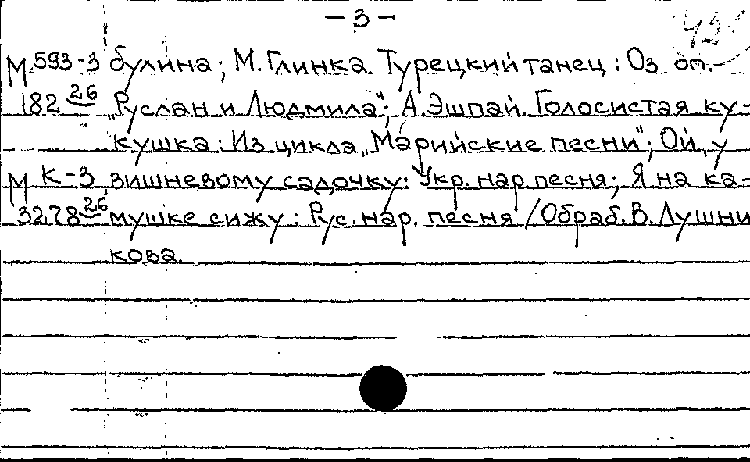 – 3 –
М 593-3 булина; М. Глинка. Турецкий танец: Оз оп.
182 26 „Руслан и Людмила“; А. Эшпай. Голосистая ку-
кушка: Из цикла „Марийские песни“; Ой, у
М К-3 вишневому садочку: Укр. нар. песня; Я на ка-
3278 26 мушке сижу: Рус. нар. песня / Обраб. В. Лушни
кова.